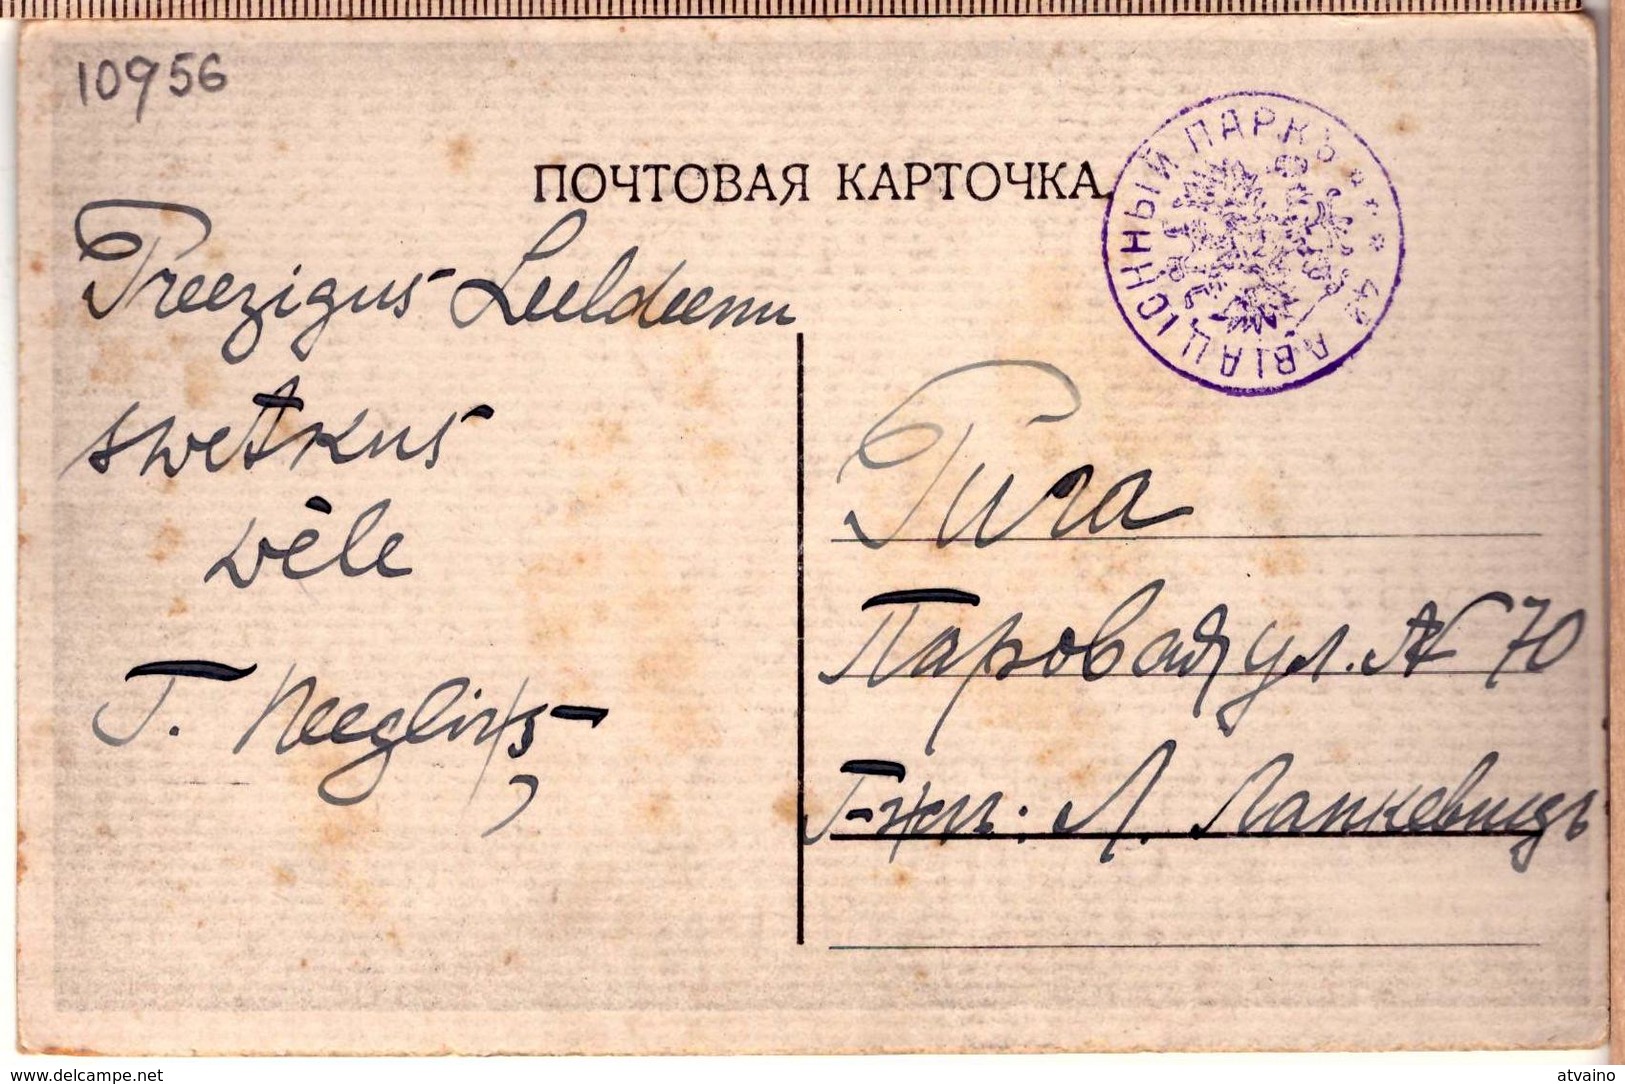 10956
ПОЧТОВАЯ КАРТОЧКА
АВІАЦІОННЫЙ ПАРКЪ
Preezigus Leeldeenu
swetkus
wèle
T. Neeglinſz
Рига
Паровая ул. № 70
Г-жѣ Л.
delcampe.net
atvaino